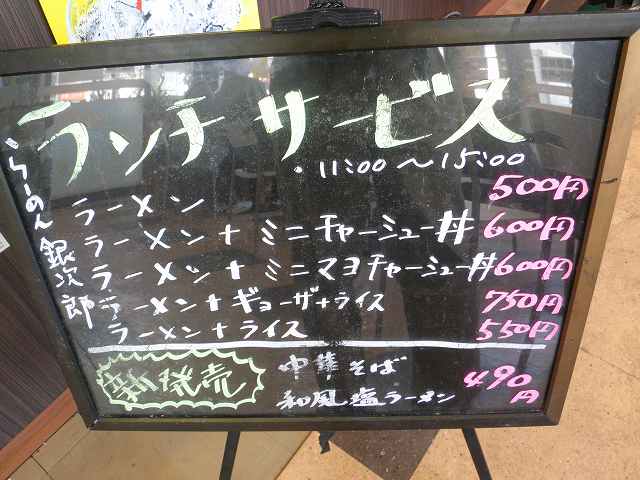 ランチ サービス
・11:00 〜 15:00
らーめん 銀次郎
ラーメン 500円
ラーメン + ミニチャーシュー丼 600円
ラーメン + ミニマヨチャーシュー丼 600円
ラーメン + ギョーザ + ライス 750円
ラーメン + ライス 550円
新発売
中華そば
和風塩ラーメン
490円